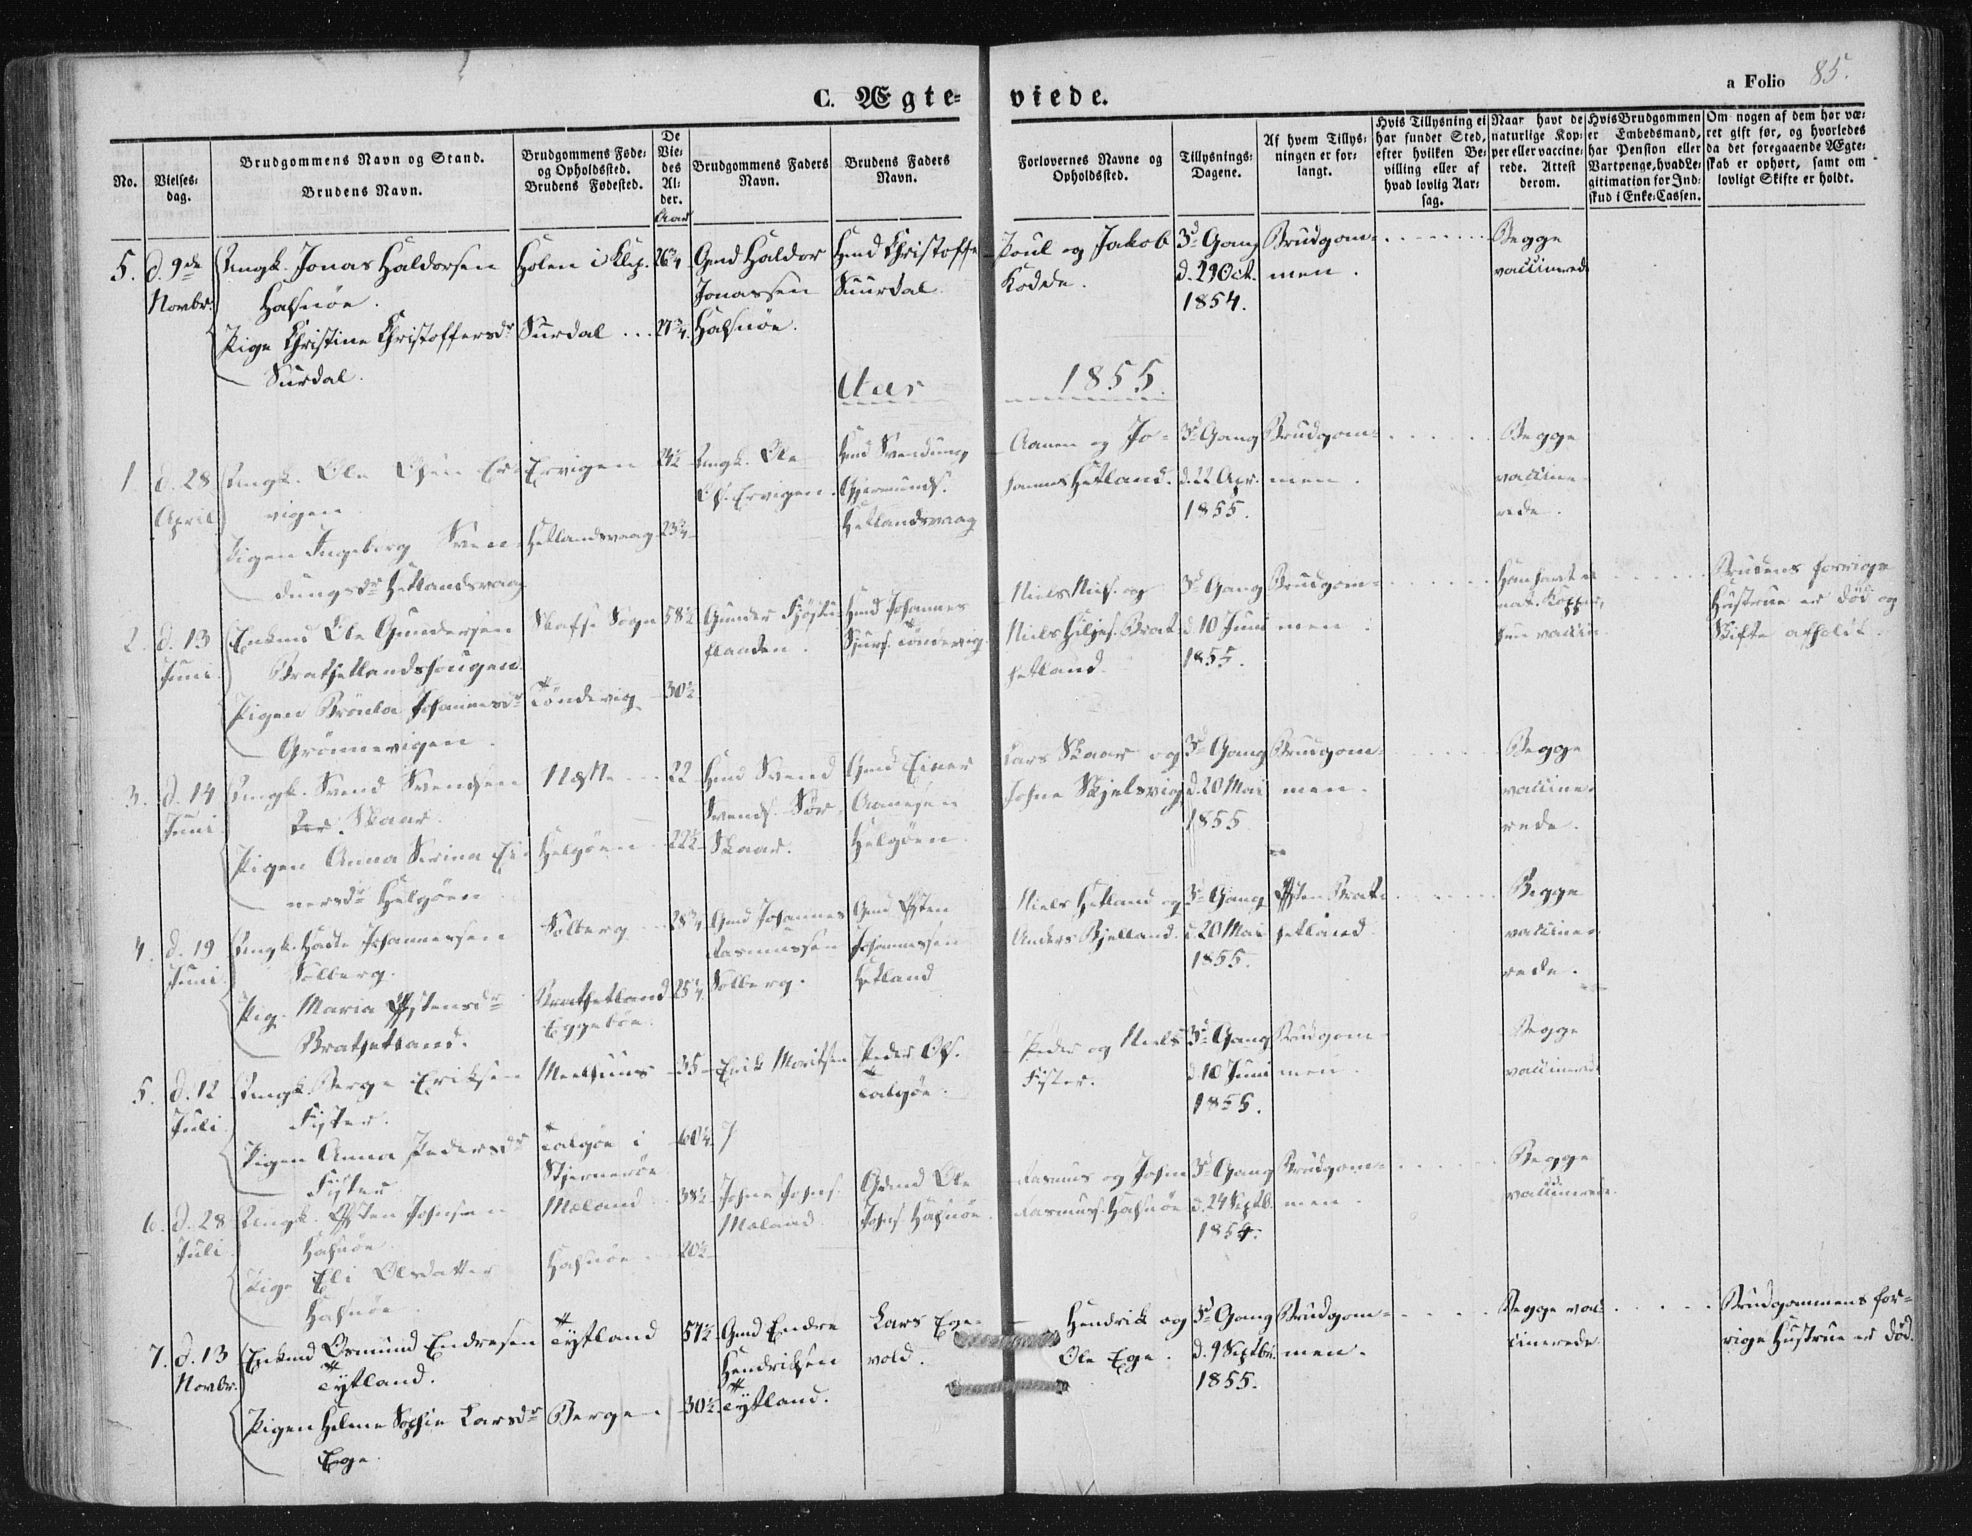 C. Ægte=
viede.
a Folio 85.
No.
Vielses=
dag.
Brudgommens Navn og Stand.
Brudens Navn.
Brudgommens Føde=
og Opholdssted.
Brudens Fødested.
De
Vie=
des
Al=
der.
Aar
Brudgommens Faders
Navn.
Brudens Faders
Navn.
Forlovernes Navne og
Opholdssted.
Tillysnings=
Dagene.
Af hvem Tillys=
ningen er for=
langt.
Hvis Tillysning ei
har fundet Sted,
efter hvilken Be=
villing eller af
hvad lovlig Aar=
sag.
Naar havt de
naturlige Kop=
per eller vaccine=
rede. Attest
derom.
Hvis Brudgommen
er Embedsmand,
har Pension eller
Vartpenge, hvad Le=
gitimation for Ind=
skud i Enke=Cassen.
Om nogen af dem har væ=
ret gift før, og hvorledes
da det foregaaende Ægte=
skab er ophørt, samt om
lovligt Skifte er holdt.
5. d. 9de
Novbr.
Ungk. Jonas Haldorsen
Halsnøe.
Pige Christine Christoffersdr
Surdal.
Holen i Klep.
Surdal
26¾
27¾
Gmd Haldor
Jonassen
Halsnøe.
Hmd Christoffer
Suurdal
Poul og Jakob
Kodde.
3d Gang
d. 29 Oct.
1854.
Brudgom=
men.
Begge
vaccinerede
Aar 1855.
1 d. 28
April
Ungk. Ole Olsen Er=
vigen
Pigen Ingeborg Sven=
dungsdr Hetlandsvaag
Ervigen
Hetlandsvaag
24½
23¾
Ungk. Ole
Ols. Ervigen.
Hmd Svendung
Gjermunds.
Hetlandsvaag
Aanen og Jo=
hannes Hetland.
3d Gang
d. 22 Apr.
1855.
Brudgom=
men.
Begge
vaccine=
rede.
2. d. 13
Juni
Enkmd Ole Gundersen
Brathetlandshougen
Pigen Brönla Johannesdr
Grönnevigen.
Skafse Sogn
Töndevig
58½
30½
Gunder Fjösne
flaaden.
Hmd Johannes
Sjurs. Töndevig.
Niels Niels. og
Niels Helges. Brat=
hetland
3d Gang
d. 10 Juni
1855.
Brudgom=
men.
Han havt de
nat. Kopper,
hun vaccin.
Brudens forrige
Hustrue er död og
Skifte afholdt.
3. d. 14
Juni
Ungk. Svend Svendsen
Skaar.
Pigen Anna Serina Ei=
nersdr Helgöen
Næste
Helgöen
22
22½
Hmd Svend
Svends. Sör
Skaar.
Gmd Einer
Aanesen
Helgöen
Lars Skaar og
Johne Skjelsvig
3d Gang
d. 20 Mai
1855
Brudgom=
men.
Begge
vaccine=
rede.
4. d. 19
Juni
Ungk. Johannesen
Solberg.
Pig. Maria Ostensdr
Brathetland.
Solberg
Brathetland
Eggeböe.
28¾
25¼
Gmd Johannes
Rasmussen
Solberg.
Gmd Osten
Johannessen
Hetland
Niels Hetland og
Anders Bjelland.
3d Gang
d. 20 Mai
1855.
Osten Brat=
hetland
Begge
vaccine=
rede.
5. d. 12
Juli
Ungk. Berge Eriksen
Fister.
Pigen Anna Pedersdr
Fister
Meelhuus
Talgöe i
Stjernerøe
35
40¼
Erik Moritsen
Peder Ols.
Talgöe.
Peder og Niels
Fister.
3d Gang
d. 10 Juni
1855.
Brudgom=
men.
Begge
vaccinerede
6. d. 28
Juli
Ungk. Osten Johnsen
Halsnöe.
Pige Eli Olsdatter
Halsnöe
Mæland
Halsnöe
38½
20½
Johne Johns.
Mæland.
Gamd Ole
Johns. Halsnöe.
Rasmus og John
Rasmuss. Halsnöe
3d Gang
d. 24 Septb.
1854.
Brudgom=
men
Begge
vaccinerede.
7. d. 13
Novbr.
Enkmd Osmund Endresen
Tytland.
Pigen Helene Sophie Larsdr
Ege.
Tytland
Bergen
57½
30½
Gmd Endre
Hendriksen
Tytland.
Lars Ege=
vold.
Hendrik og
Ole Ege.
3d Gang
d. 9 Septbr.
1855.
Brudgom=
men.
Begge vac=
cinerede
Brudgommens for=
rige Hustrue er död.